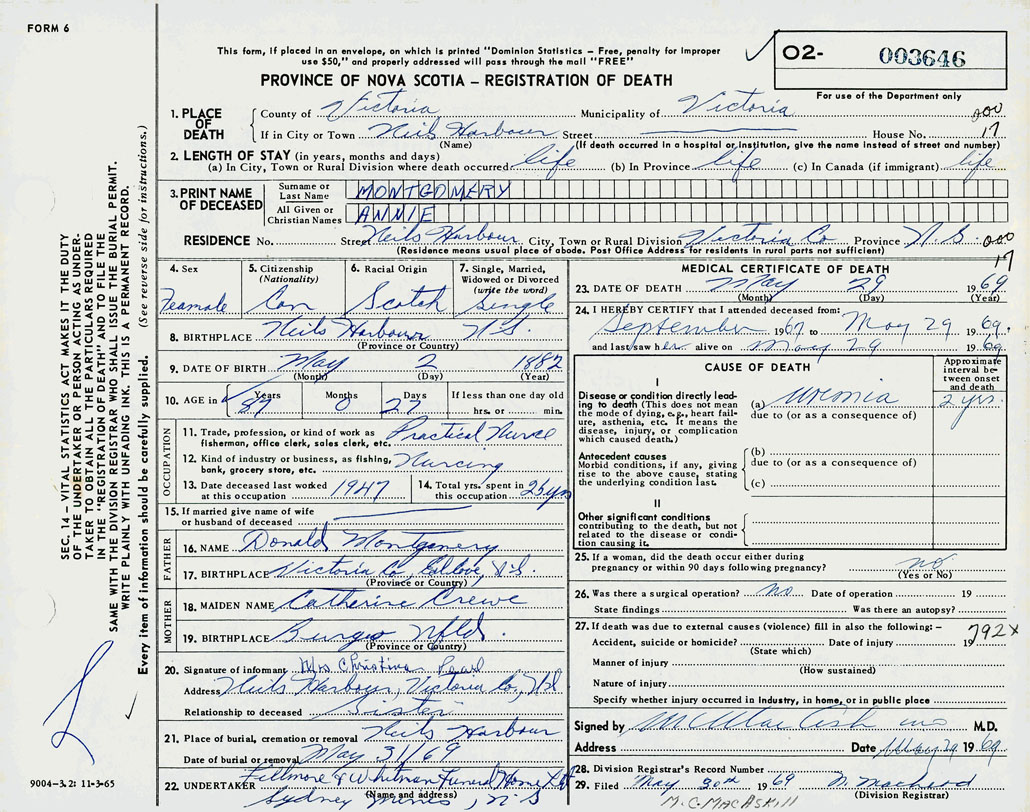 FORM 6
This form, if placed in an envelope, on which is printed "Dominion Statistics – Free, penalty for improper
use $50," and properly addressed will pass through the mail "FREE"
PROVINCE OF NOVA SCOTIA – REGISTRATION OF DEATH
O2- 003646
For use of the Department only
1. PLACE OF DEATH
County of Victoria Municipality of Victoria 000
If in City or Town Neils Harbour Street House No. 17
(Name) (If death occurred in a hospital or institution, give the name instead of street and number)
2. LENGTH OF STAY (in years, months and days)
(a) In City, Town or Rural Division where death occurred life (b) In Province life (c) In Canada (if immigrant) life
3. PRINT NAME OF DECEASED
Surname or Last Name MONTGOMERY
All Given or Christian Names ANNIE
RESIDENCE No. Street Neils Harbour City, Town or Rural Division Victoria Co Province N.S. 000
(Residence means usual place of abode. Post Office Address for residents in rural parts not sufficient) 17
4. Sex Feamale
5. Citizenship (Nationality) Can
6. Racial Origin Scotch
7. Single, Married, Widowed or Divorced (write the word) Single
8. BIRTHPLACE Neils Harbour N.S.
(Province or Country)
9. DATE OF BIRTH May 2 1882
(Month) (Day) (Year)
10. AGE in Years 87 Months 0 Days 27 If less than one day old hrs. or min.
OCCUPATION
11. Trade, profession, or kind of work as fisherman, office clerk, sales clerk, etc. Practical Nurse
12. Kind of industry or business, as fishing, bank, grocery store, etc. Nursing
13. Date deceased last worked at this occupation 1947
14. Total yrs. spent in this occupation 25 yrs
15. If married give name of wife or husband of deceased
FATHER
16. NAME Donald Montgomery
17. BIRTHPLACE Victoria Co, N.S.
(Province or Country)
MOTHER
18. MAIDEN NAME Catherine Crewe
19. BIRTHPLACE Burgeo Nfld.
(Province or Country)
20. Signature of informant Mrs. Christina
Address Neils Harbour, Victoria Co, N.S
Relationship to deceased Sister
21. Place of burial, cremation or removal Neils Harbour
Date of burial or removal May 31/69
22. UNDERTAKER Fillmore & Whitman Funeral Home Ltd
(Name and address)
Sydney Mines, N.S
MEDICAL CERTIFICATE OF DEATH
23. DATE OF DEATH May 29 1969
(Month) (Day) (Year)
24. I HEREBY CERTIFY that I attended deceased from:
September 1967 to May 29 1969.
and last saw her alive on May 29 1969
CAUSE OF DEATH
Approximate interval between onset and death
I
Disease or condition directly leading to death (This does not mean the mode of dying, e.g., heart failure, asthenia, etc. It means the disease, injury, or complication which caused death.)
(a) Uremia 2 yrs.
due to (or as a consequence of)
Antecedent causes
Morbid conditions, if any, giving rise to the above cause, stating the underlying condition last.
(b)
due to (or as a consequence of)
(c)
II
Other significant conditions contributing to the death, but not related to the disease or condition causing it.
25. If a woman, did the death occur either during
pregnancy or within 90 days following pregnancy? no
(Yes or No)
26. Was there a surgical operation? no Date of operation 19
State findings Was there an autopsy?
27. If death was due to external causes (violence) fill in also the following: – 792X
Accident, suicide or homicide? Date of injury 19
(State which)
Manner of injury
(How sustained)
Nature of injury
Specify whether injury occurred in industry, in home, or in public place
Signed by M.D.
Address Date May 29 1969
28. Division Registrar's Record Number
29. Filed May 30th 1969 N. MacLeod
(Division Registrar)
M.C. MACASKILL
SEC. 14 – VITAL STATISTICS ACT MAKES IT THE DUTY
OF THE UNDERTAKER OR PERSON ACTING AS UNDER-
TAKER TO OBTAIN ALL THE PARTICULARS REQUIRED
IN THE "REGISTRATION OF DEATH" AND TO FILE THE
SAME WITH THE DIVISION REGISTRAR WHO SHALL ISSUE THE BURIAL PERMIT.
WRITE PLAINLY WITH UNFADING INK. THIS IS A PERMANENT RECORD.
Every item of information should be carefully supplied. (See reverse side for instructions.)
9004-3.2: 11-3-65